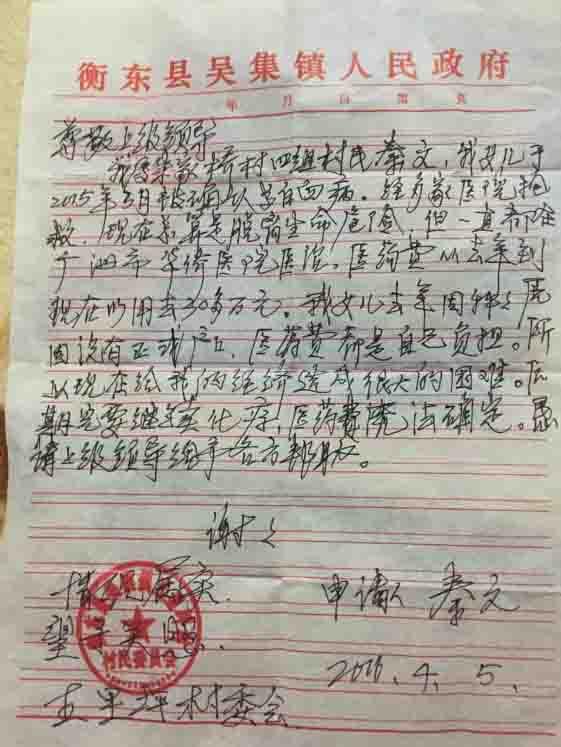 衡东县吴集镇人民政府
年 月 日 第 页
尊敬上级领导
我 桥村四组村民秦文，我女儿于
2015年3月被确认 白血病。经多家医院抢
救，现在 算是脱离生命危险，但一直都在
广 市华侨医院医治，医药费从去年到
现在以用去30多万元。我女儿去年
因没有正式户口，医药费都是自己负担。所
以现在给我的经济造成很大的困难。后
期还要继续化疗，医药费无法确定。恳
请上级领导给予各方
谢谢
情况属实. 申请人 秦文
望予关
村民委员会
2016.4.5.
五里坪村委会